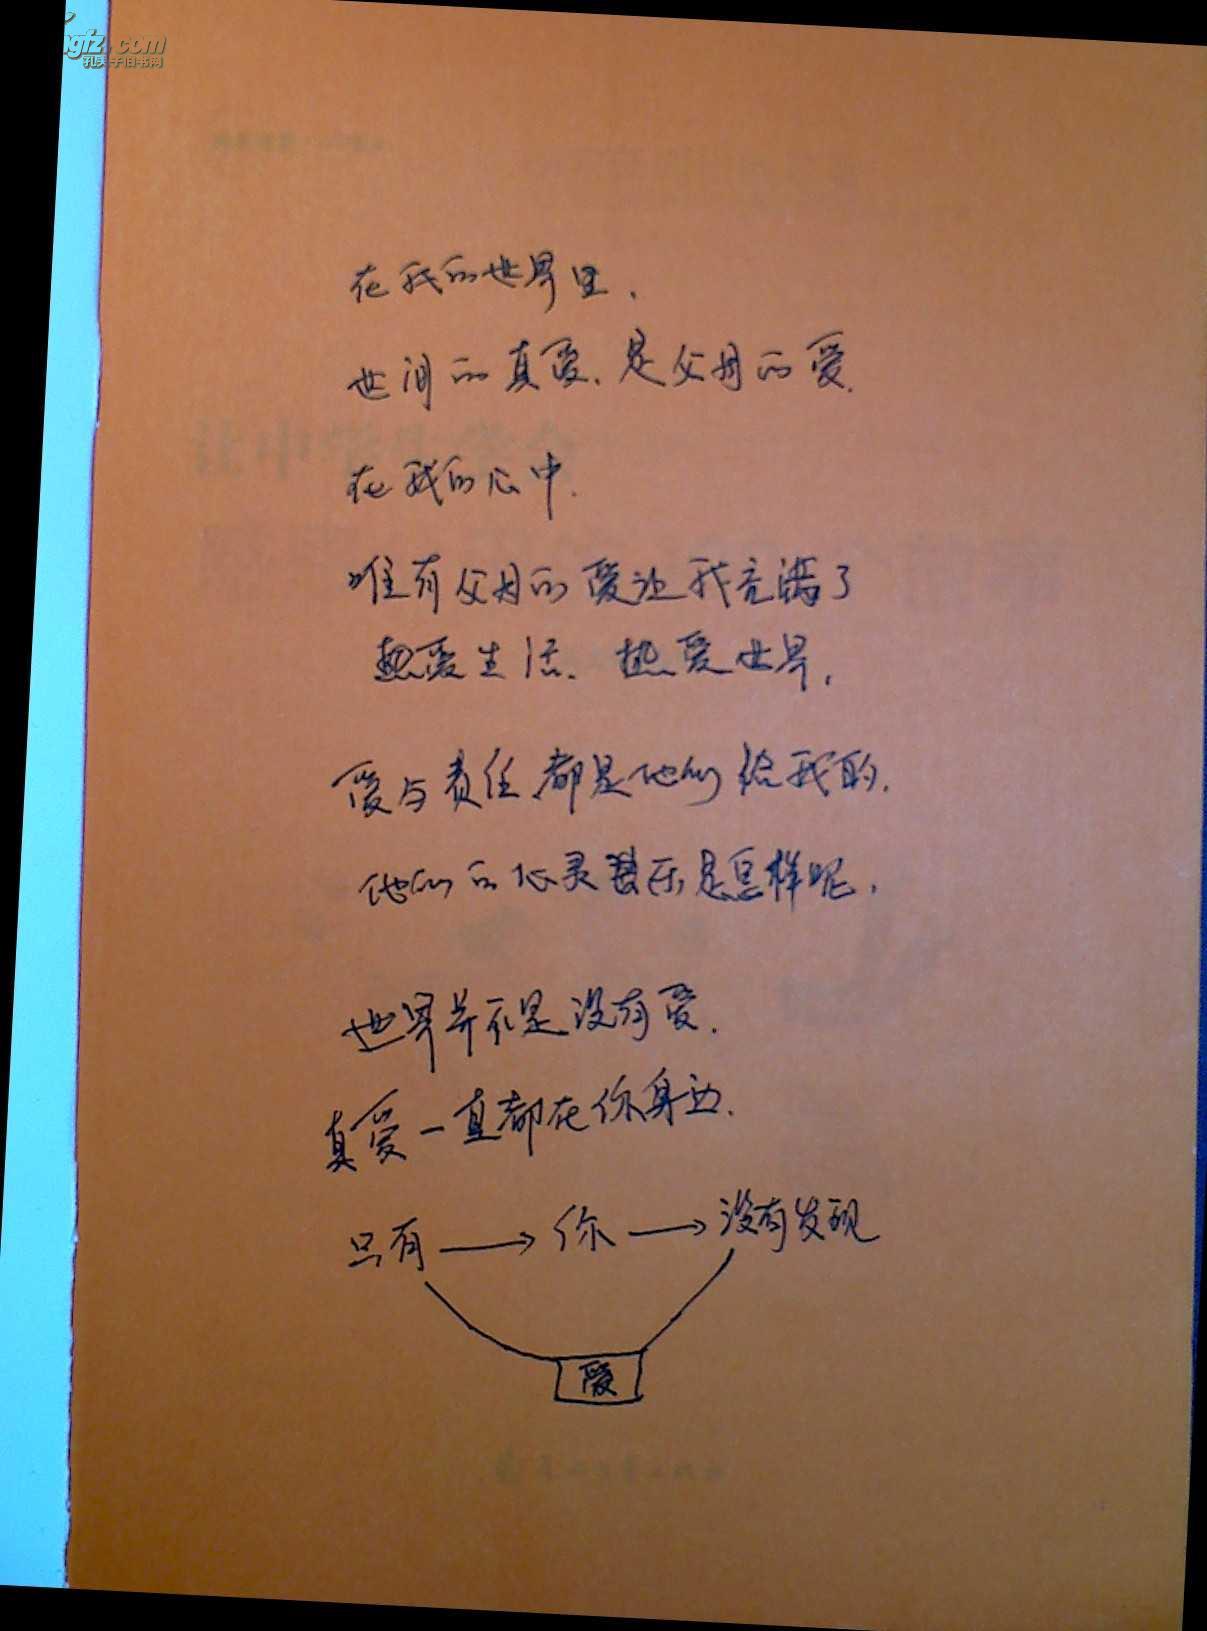 gfz.com
孔夫子旧书网
在我的世界里.
世间的真爱、是父母的爱.
在我的心中.
唯有父母的爱让我充满了
热爱生活、热爱世界.
爱与责任都是他们给我的.
他们的心灵音乐是怎样呢.
世界并不是没有爱.
真爱一直都在你身边.
只有 → 你 → 没有发现
爱